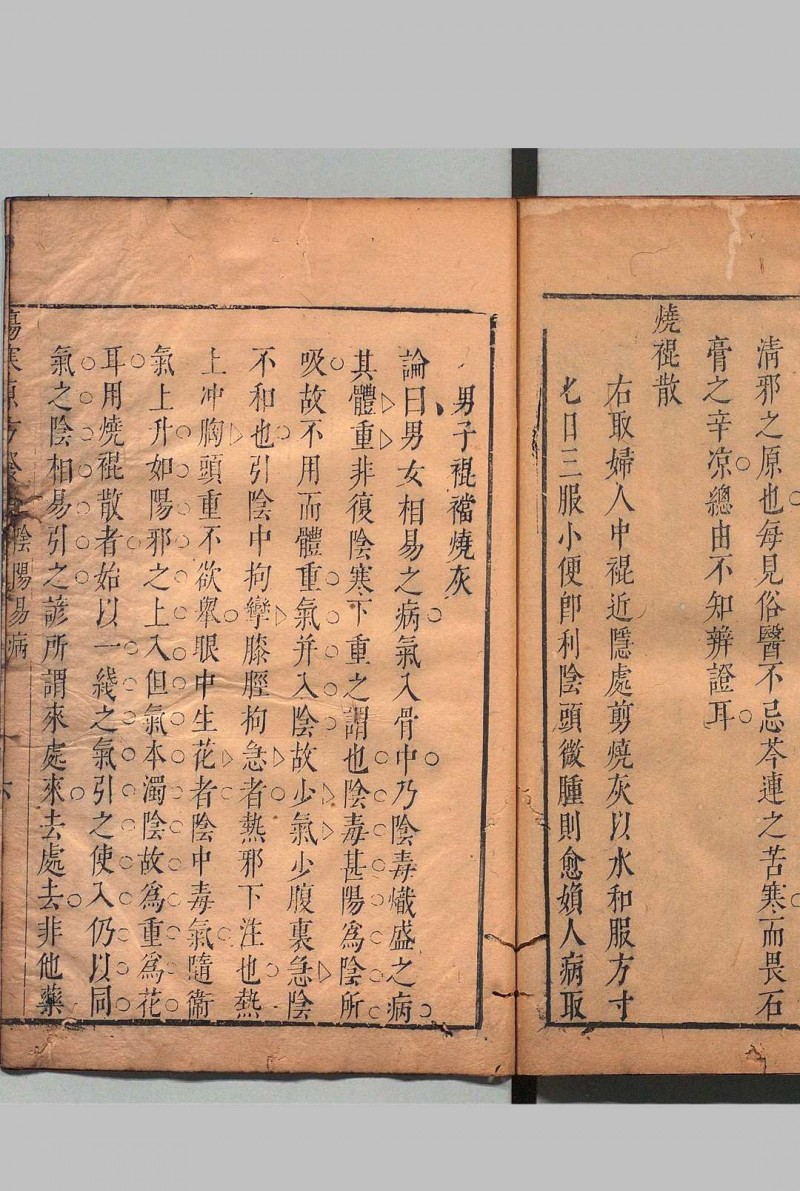 清邪之原也每見俗醫不忌芩連之苦寒而畏石
膏之辛凉總由不知辨證耳
燒裩散
右取婦人中裩近隱處剪燒灰以水和服方寸
匕日三服小便卽利陰頭微腫則愈婦人病取
男子裩襠燒灰
論曰男女相易之病氣入骨中乃陰毒熾盛之病
其體重非復陰寒下重之謂也陰毒甚陽爲陰所
吸故不用而體重氣并入陰故少氣少腹裏急陰
不和也引陰中拘攣膝脛拘急者熱邪下注也熱
上冲胸頭重不欲舉眼中生花者陰中毒氣隨衝
氣上升如陽邪之上入但氣本濁陰故爲重爲花
耳用燒裩散者始以一綫之氣引之使入仍以同
氣之陰相易引之諺所謂來處來去處去非他藥
傷寒原方
陰陽易病
六